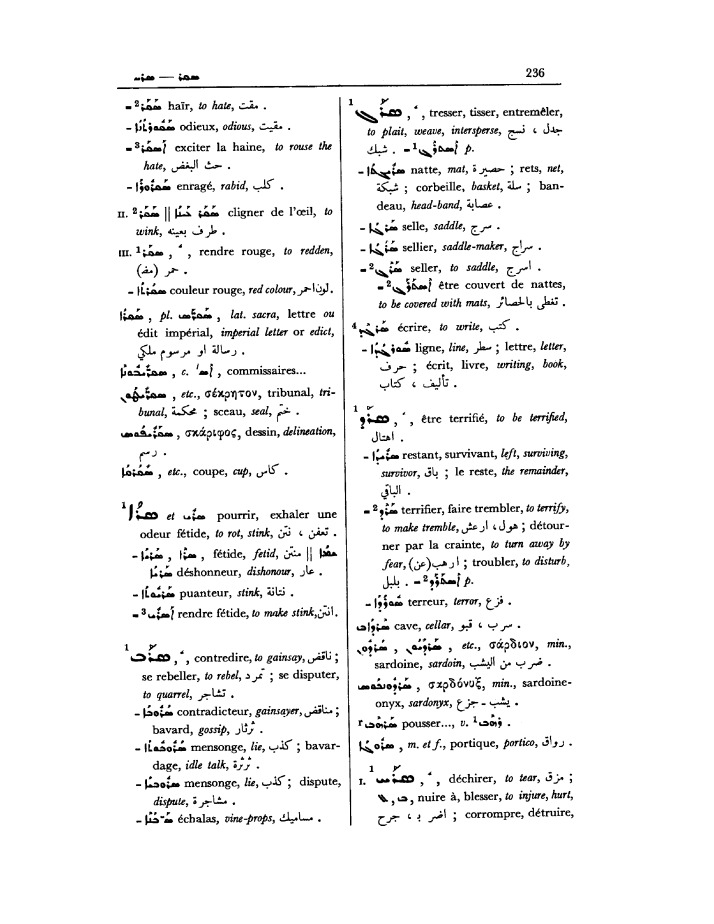 ܣܩܪ — ܣܪܚ
236
ܣܩܪ² - haïr, to hate, مقت .
- ܣܩܘܪܐ odieux, odious, مقيت .
ܐܣܩܪ³ - exciter la haine, to rouse the
hate, حث البغض .
- enragé, rabid, كلب .
II. ܣܩܪ² || ܣܩܪ ܥܝܢܐ cligner de l'œil, to
wink, طرف بعينه .
III. ܣܩܪ¹ , rendre rouge, to redden,
حمر (مف) .
- couleur rouge, red colour, لون احمر .
ܣܩܪܐ , pl. , lat. sacra, lettre ou
édit impérial, imperial letter or edict,
رسالة او مرسوم ملكي .
, c. , commissaires...
, etc., σέκρητον, tribunal, tri-
bunal, محكمة ; sceau, seal, ختم .
, σκάριφος, dessin, delineation,
رسم .
, etc., coupe, cup, كاس .
¹ ܣܪܐ et ܣܪܝ pourrir, exhaler une
odeur fétide, to rot, stink, تعفن ، نتن .
- ܣܪܝܐ , ܣܪܐ , fétide, fetid, منتن ||
ܣܪܝܐ déshonneur, dishonour, عار .
- ܣܪܝܘܬܐ puanteur, stink, نتانة .
ܐܣܪܝ³ - rendre fétide, to make stink, انتن .
¹ ܣܪܒ , contredire, to gainsay, ناقض ;
se rebeller, to rebel, تمرد ; se disputer,
to quarrel, تشاجر .
- ܣܪܘܒܐ contradicteur, gainsayer, مناقض ;
bavard, gossip, ثرثار .
- ܣܪܘܒܘܬܐ mensonge, lie, كذب ; bavar-
dage, idle talk, ثرثرة .
- ܣܪܘܒܝܐ mensonge, lie, كذب ; dispute,
dispute, مشاجرة .
- échalas, vine-props, مساميك .
¹ ܣܪܓ , tresser, tisser, entremêler,
to plait, weave, intersperse, جدل ، نسج
، شبك . - ¹ p.
- ܣܪܝܓܬܐ natte, mat, حصيرة ; rets, net,
شبكة ; corbeille, basket, سلة ; ban-
deau, head-band, عصابة .
- ܣܪܓܐ selle, saddle, سرج .
- ܣܪܓܐ sellier, saddle-maker, سراج .
ܣܪܓ² - seller, to saddle, اسرج .
² - être couvert de nattes,
to be covered with mats, تغطى بالحصائر .
⁴ ܣܪܓܛ écrire, to write, كتب .
- ligne, line, سطر ; lettre, letter,
حرف ; écrit, livre, writing, book,
تأليف ، كتاب .
¹ ܣܪܕ , être terrifié, to be terrified,
اهتال .
- ܣܪܝܕܐ restant, survivant, left, surviving,
survivor, باق ; le reste, the remainder,
الباقي .
ܣܪܕ² - terrifier, faire trembler, to terrify,
to make tremble, هول ، ارعش ; détour-
ner par la crainte, to turn away by
fear, ارهب (عن) ; troubler, to disturb,
بلبل . - ² p.
- ܣܘܪܕܐ terreur, terror, فزع .
ܣܪܕܐܒ cave, cellar, سرب ، قبو .
ܣܪܕܘܢ , , etc., σάρδιον, min.,
sardoine, sardoin, ضرب من اليشب .
, σαρδόνυξ, min., sardoine-
onyx, sardonyx, يشب - جزع .
ܣܪܗܒ pousser..., v. ¹ .
ܣܪܘܓܐ , m. et f., portique, portico, رواق .
I. ¹ ܣܪܚ , déchirer, to tear, مزق ;
ܒ ، ܠ , nuire à, blesser, to injure, hurt,
اضر بـ ، جرح ; corrompre, détruire,